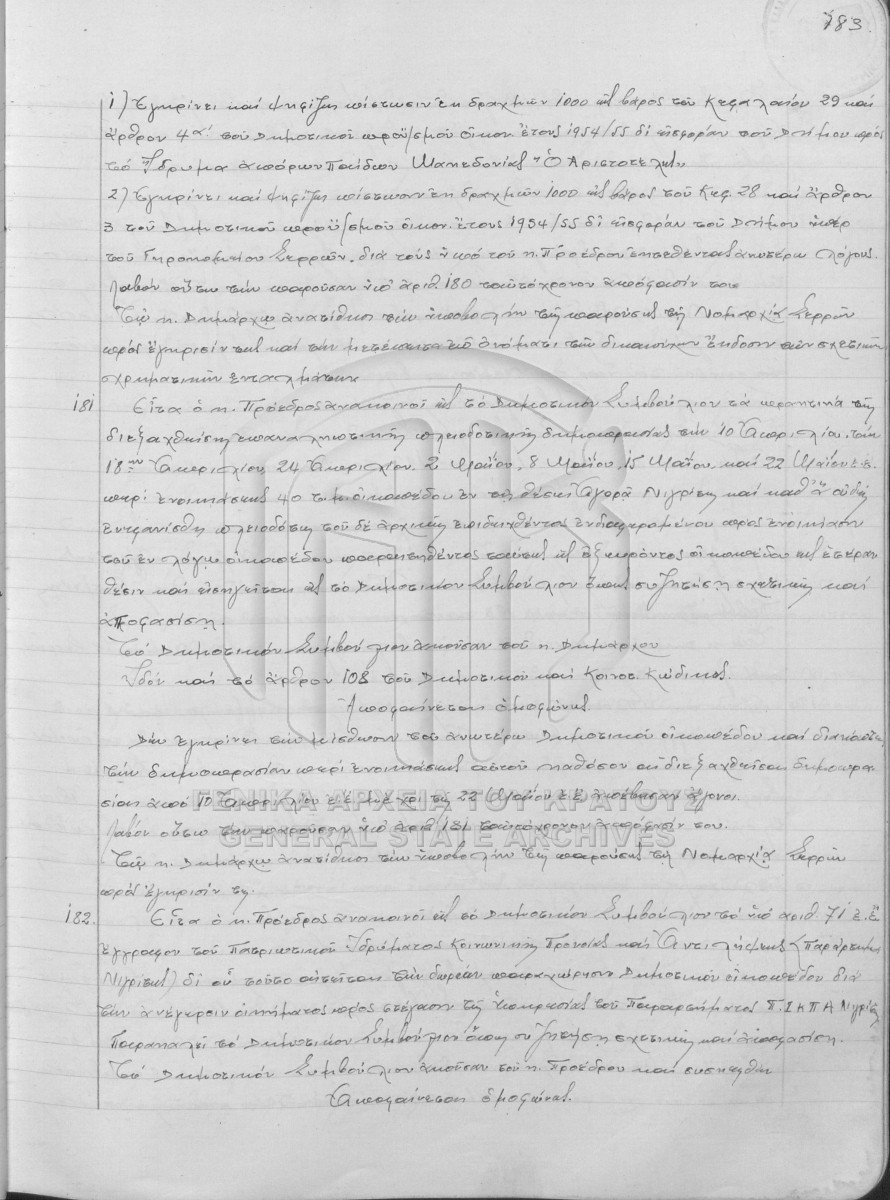 183
1) Ἐγκρίνει καί ψηφίζει πίστωσιν ἐκ δραχμῶν 1000 εἰς βάρος τοῦ Κεφαλαίου 29 καί
ἄρθρου 4α' τοῦ Δημοτικοῦ προϋ/σμοῦ οἰκον. ἔτους 1954/55 δι' εἰσφοράν τοῦ Δήμου πρός
τό Ἵδρυμα ἀπόρων Παίδων Μακεδονίας "Ὁ Ἀριστοτέλης"
2) Ἐγκρίνει καί ψηφίζει πίστωσιν ἐκ δραχμῶν 1000 εἰς βάρος τοῦ Κεφ. 28 καί ἄρθρου
3 τοῦ Δημοτικοῦ προϋ/σμοῦ οἰκον. ἔτους 1954/55 δι' εἰσφοράν τοῦ Δήμου ὑπέρ
τοῦ Γηροκομείου Σερρῶν, διά τούς ὑπό τοῦ κ. Προέδρου ἐκτεθέντας ἀνωτέρω λόγους.
Λαβόν οὕτω τήν παροῦσαν ὑπ' ἀριθ. 180 ταὐτόχρονον ἀπόφασίν του
Τῷ κ. Δημάρχῳ ἀνατίθησι τήν ὑποβολήν τῆς παρούσης τῇ Νομαρχίᾳ Σερρῶν
πρός ἔγκρισίν της καί τήν μετέπειτα ἐπ' ὀνόματι τῶν δικαιούχων ἔκδοσιν τῶν σχετικῶν
χρηματικῶν ἐνταλμάτων
181 Εἶτα ὁ κ. Πρόεδρος ἀνακοινοῖ εἰς τό Δημοτικόν Συμβούλιον τά πρακτικά τῆς
διεξαχθείσης ἐπαναληπτικῆς πλειοδοτικῆς δημοπρασίας τήν 10 Ἀπριλίου, τήν
18ην Ἀπριλίου, 24 Ἀπριλίου, 2 Μαΐου, 8 Μαΐου, 15 Μαΐου, καί 22 Μαΐου ἐ.ἔ.
περί ἐνοικιάσεως 40 τ.μ. οἰκοπέδου ἐν τῇ θέσει Ἀγορᾷ Νιγρίτης καί καθ' ἅ οὐδείς
ἐνεφανίσθη πλειοδότης τοῦ δέ ἀρχικῶς ἐπιδειχθέντος ἐνδιαφερομένου πρός ἐνοικίασιν
τοῦ ἐν λόγῳ οἰκοπέδου παραιτηθέντος ταύτης ὡς ἐξευρόντος οἰκοπέδου εἰς ἑτέραν
θέσιν καί εἰσηγεῖται εἰς τό Δημοτικόν Συμβούλιον ὅπως συζητήσῃ σχετικῶς καί
ἀποφασίσῃ.
Τό Δημοτικόν Συμβούλιον ἀκοῦσαν τοῦ κ. Δημάρχου
Ἰδόν καί τό ἄρθρον 108 τοῦ Δημοτικοῦ καί Κοινοτ. Κώδικος.
Ἀποφαίνεται ὁμοφώνως.
Δέν ἐγκρίνει τήν μίσθωσιν τοῦ ἀνωτέρω Δημοτικοῦ οἰκοπέδου καί διακόπτει
τήν δημοπρασίαν περί ἐνοικιάσεως αὐτοῦ καθόσον αἱ διεξαχθεῖσαι δημοπρα
σίαι ἀπό 10 Ἀπριλίου ἐ.ἔ. μέχρι τῆς 22 Μαΐου ἐ.ἔ. ἀπέβησαν ἄγονοι.
Λαβόν οὕτω τήν παροῦσαν ὑπ' ἀριθ. 181 ταὐτόχρονον ἀπόφασίν του.
Τῷ κ. Δημάρχῳ ἀνατίθησι τήν ὑποβολήν τῆς παρούσης τῇ Νομαρχίᾳ Σερρῶν
πρός ἔγκρισίν της.
182. Εἶτα ὁ κ. Πρόεδρος ἀνακοινοῖ εἰς τό Δημοτικόν Συμβούλιον τό ὑπό ἀριθ. 71 ἐ.ἔ.
ἔγγραφον τοῦ Πατριωτικοῦ Ἱδρύματος Κοινωνικῆς Προνοίας καί Ἀντιλήψεως (Παράρτημα
Νιγρίτης) δι' οὗ τοῦτο αἰτεῖται τήν δωρεάν παραχώρησιν Δημοτικοῦ οἰκοπέδου διά
τήν ἀνέγερσιν οἰκήματος πρός στέγασιν τῆς ὑπηρεσίας τοῦ Παραρτήματος Π.Ι.Κ.Π.Α Νιγρίτης
Παρακαλεῖ τό Δημοτικόν Συμβούλιον ὅπως συζητήσῃ σχετικῶς καί ἀποφασίσῃ.
Τό Δημοτικόν Συμβούλιον ἀκοῦσαν τοῦ κ. Προέδρου καί συσκεφθέν
Ἀποφαίνεται ὁμοφώνως.
ΓΕΝΙΚΑ ΑΡΧΕΙΑ ΤΟΥ ΚΡΑΤΟΥΣ
GENERAL STATE ARCHIVES